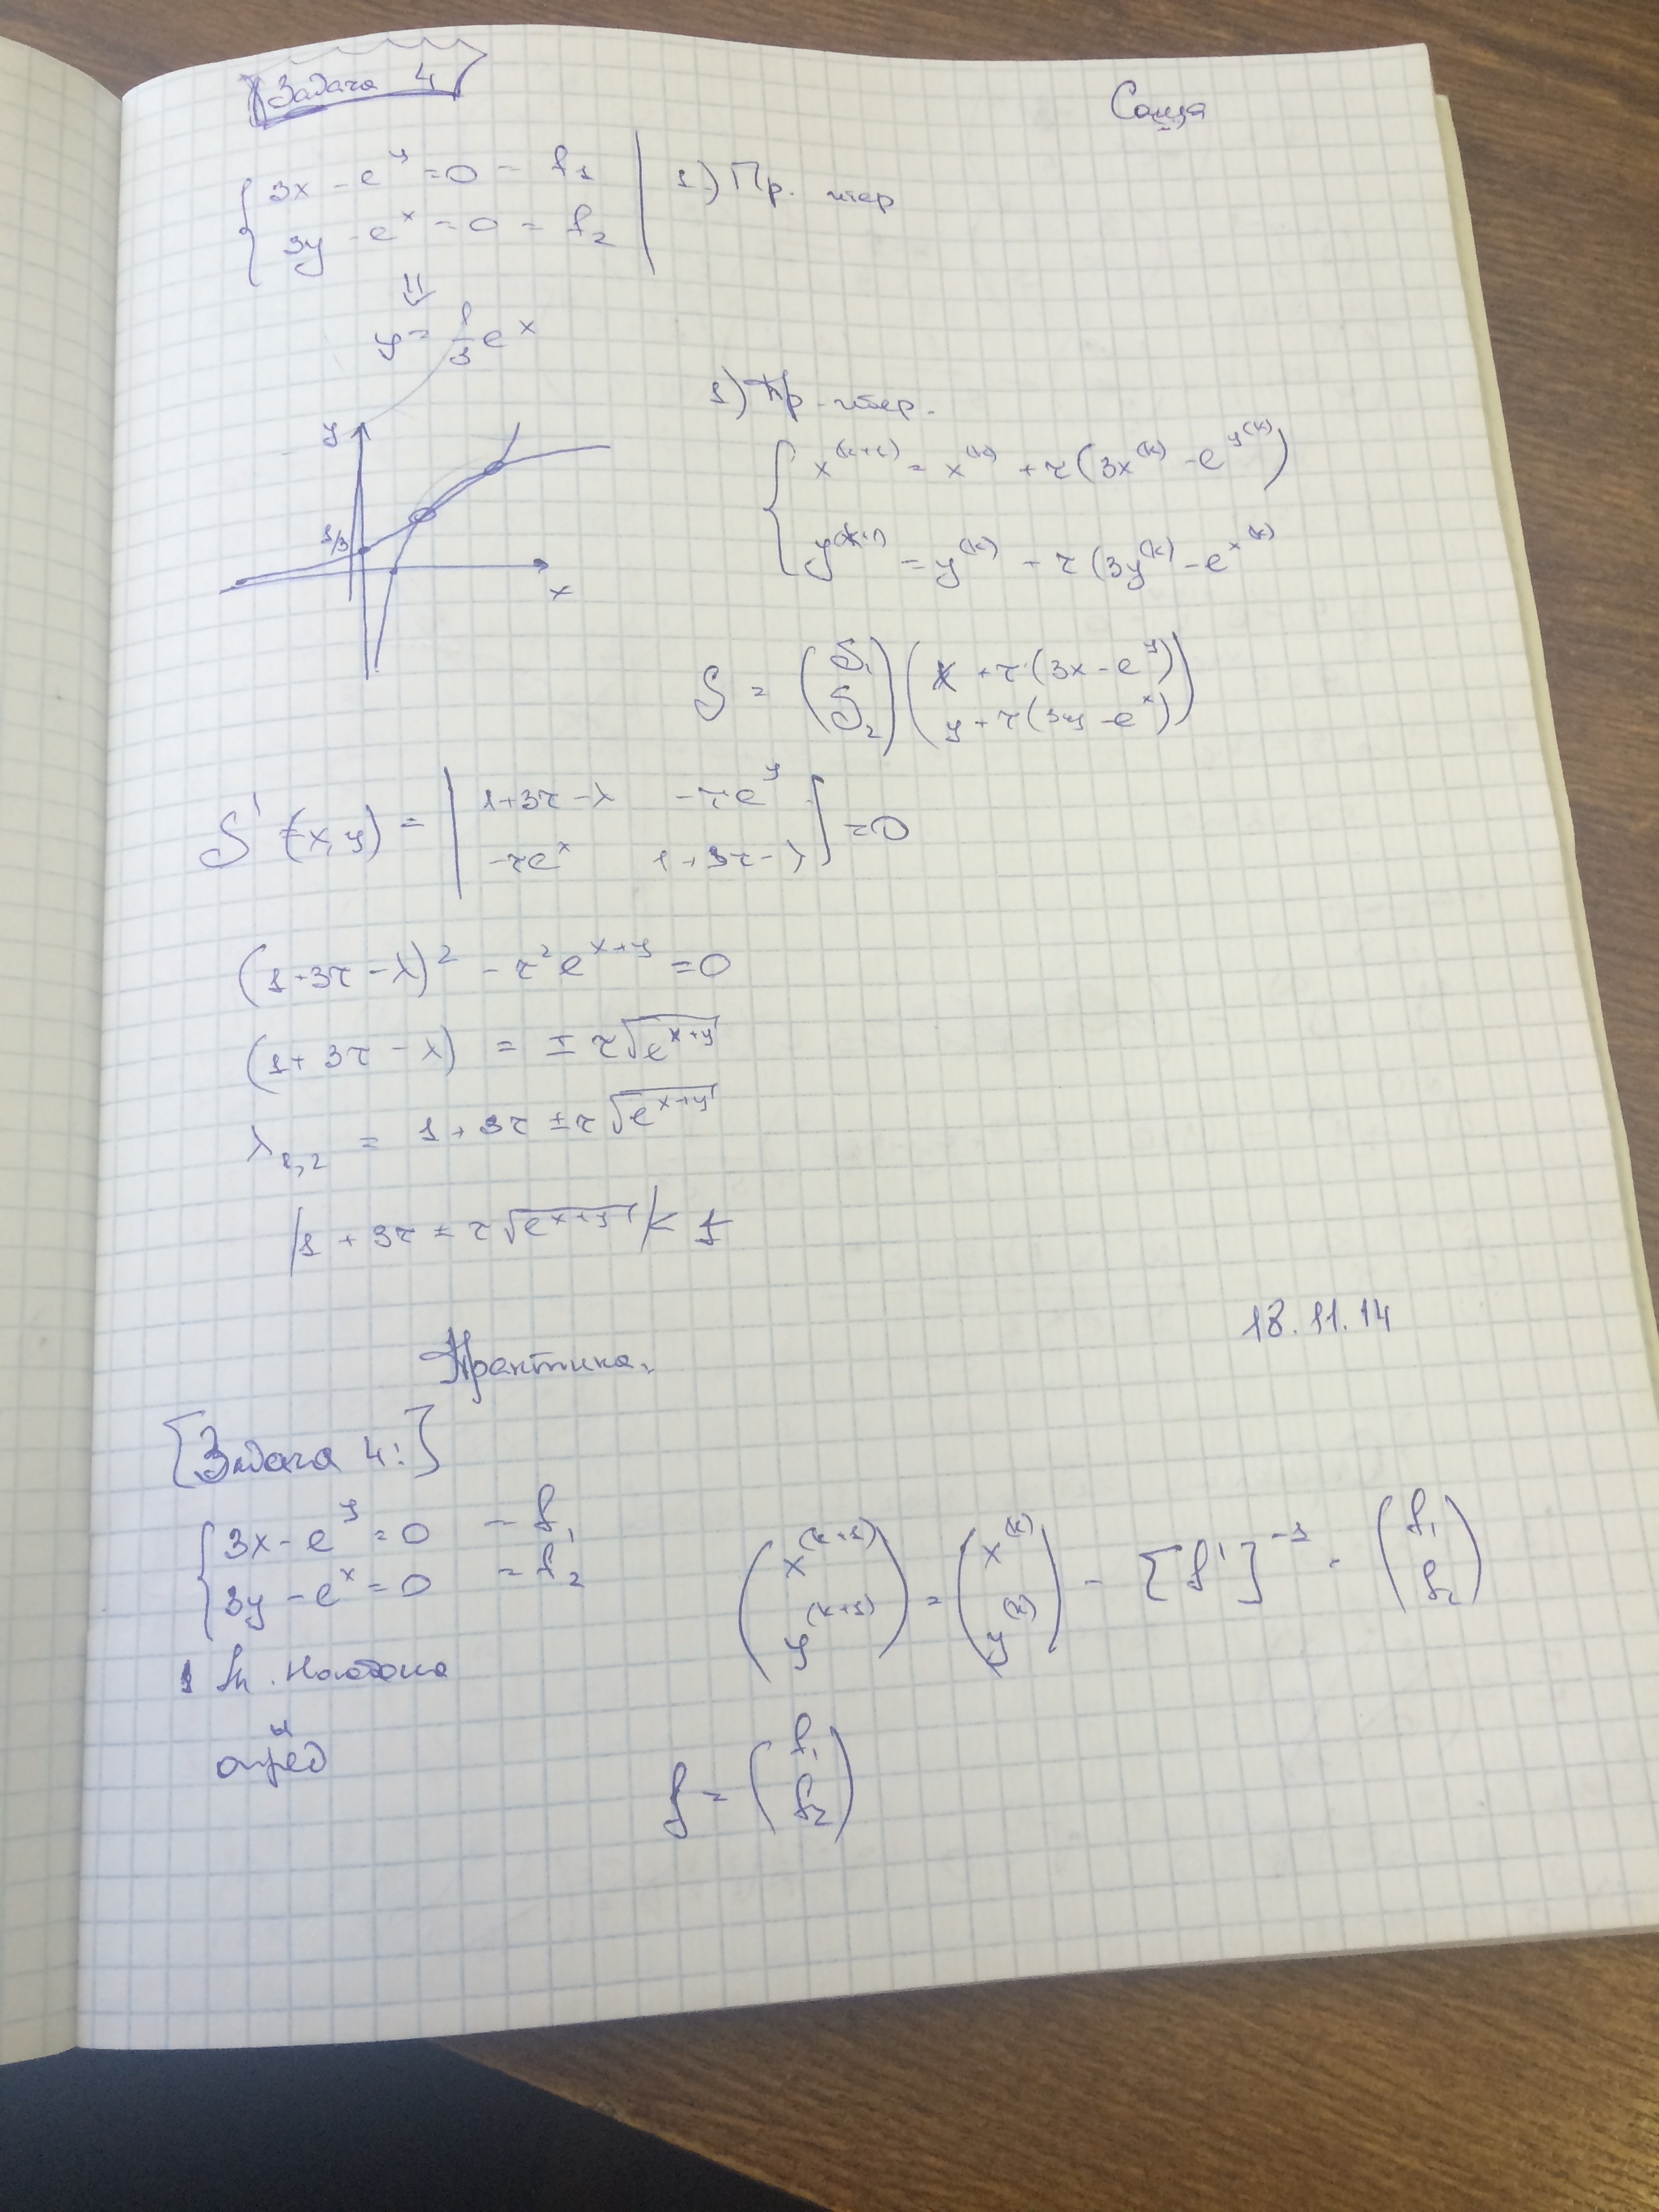 Задача 4
Саша
{ 3x - e^y = 0 - f₁
3y - e^x = 0 = f₂
1.) Пр. итер
⇓
y = 1/3 e^x
y
1/3
x
1) Пр. итер.
{ x^(k+1) = x^(k) + τ(3x^(k) - e^y^(k))
y^(k+1) = y^(k) + τ(3y^(k) - e^x^(k)
S = (S₁ S₂) (x + τ(3x - e^y) y + τ(3y - e^x))
S'(x,y) = | 1+3τ-λ -τe^y
-τe^x 1+3τ-λ | = 0
(1+3τ-λ)² - τ²e^(x+y) = 0
(1+3τ-λ) = ± τ√e^(x+y)
λ₁,₂ = 1+3τ ± τ√e^(x+y)
|1 + 3τ ± τ√e^(x+y)| < 1
18.11.14
Практика.
[Задача 4:]
{ 3x - e^y = 0 - f₁
3y - e^x = 0 = f₂
(x^(k+1) y^(k+1)) = (x^(k) y^(k)) - [f']^-1 · (f₁ f₂)
Ньютона
f = (f₁ f₂)